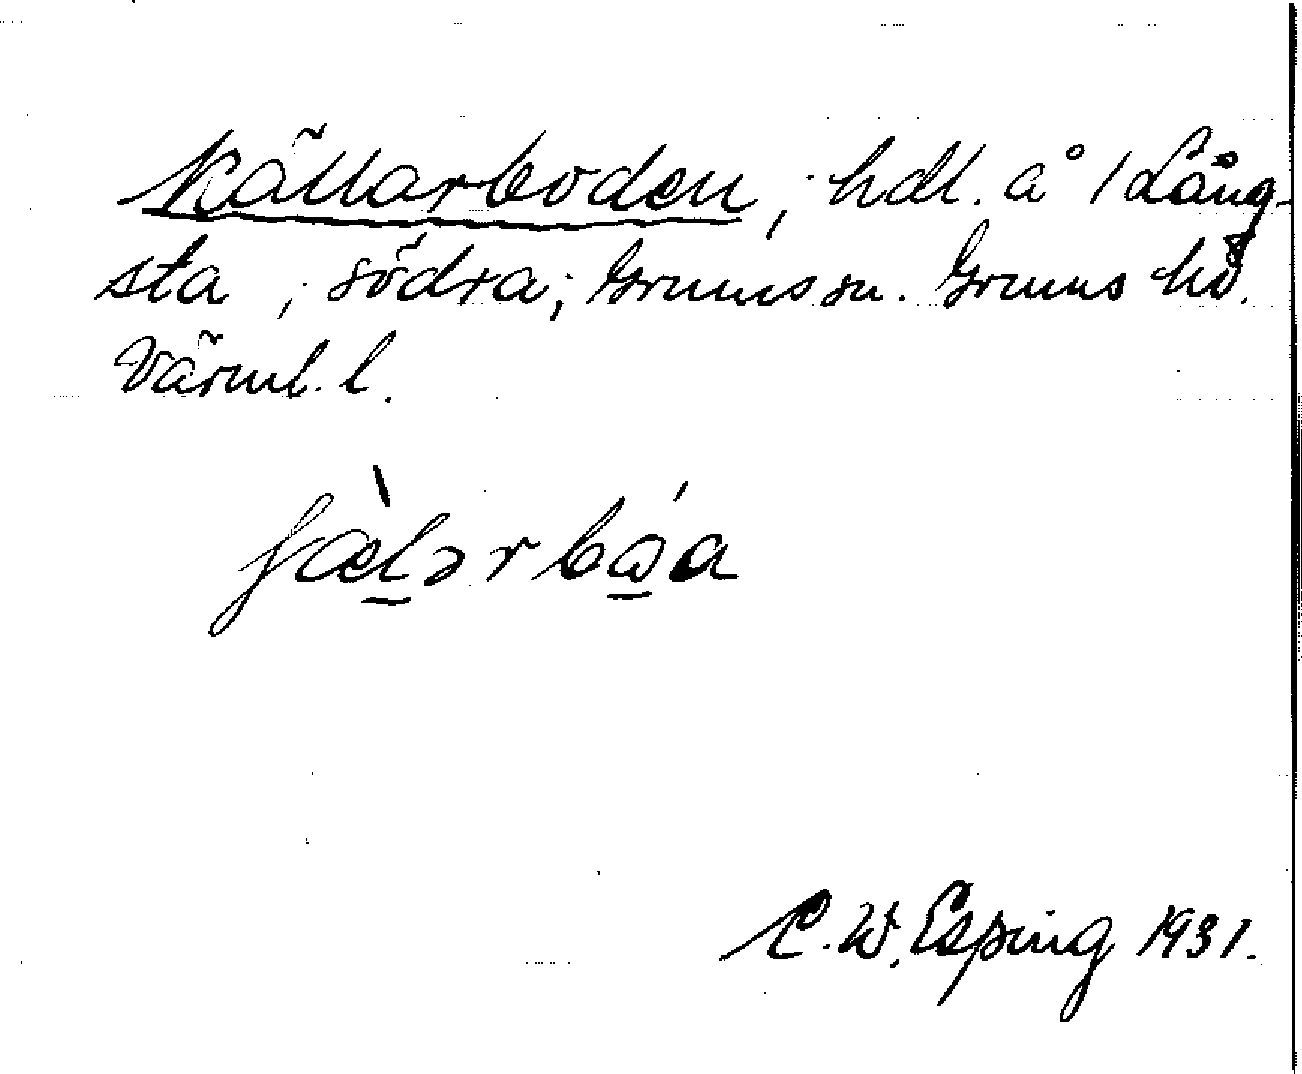 Källarboden, hdl. å 1 Lång-
sta, södra; Grums sn. Grums hd.
Värml. l.
C. W. Esping 1931.